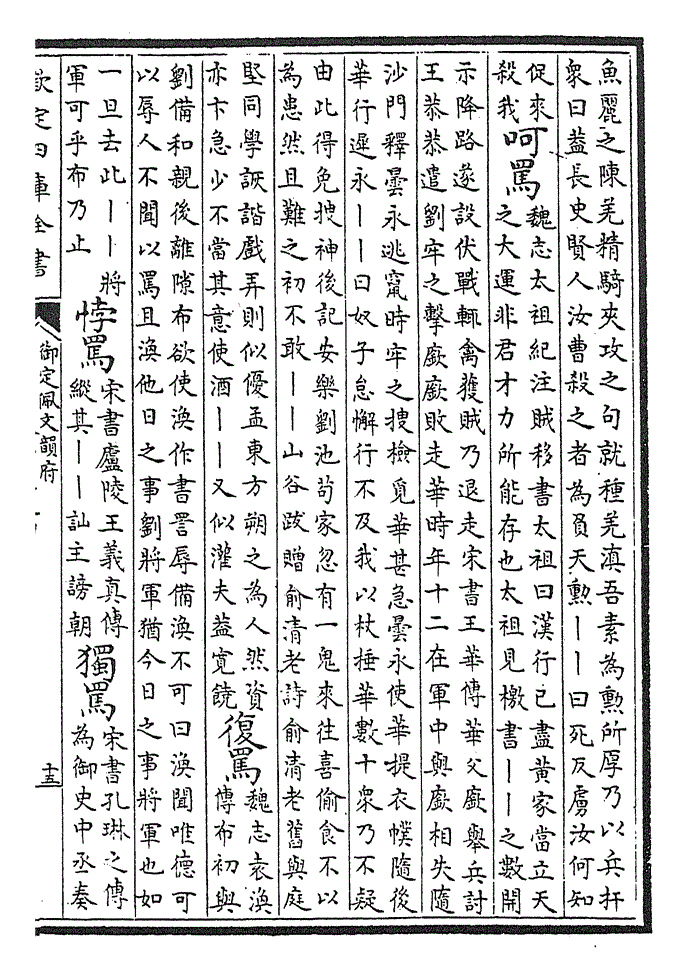 魚麗之陳羌精騎夾攻之句就種羌滇吾素為勲所厚乃以兵扞
衆曰葢長史賢人汝曹殺之者為負天勲丨丨曰死反虜汝何知
促來
殺我
呵罵
魏志太祖紀注賊移書太祖曰漢行已盡黄家當立天
之大運非君才力所能存也太祖見檄書丨丨之數開
示降路遂設伏戰輒禽獲賊乃退走宋書王華傳華父廞舉兵討
王恭恭遣劉牢之擊廞廞敗走華時年十二在軍中與廞相失隨
沙門釋曇永逃竄時牢之搜檢覓華甚急曇永使華提衣幞隨後
華行遲永丨丨曰奴子怠懈行不及我以杖捶華數十衆乃不疑
由此得免搜神後記安樂劉池苟家忽有一鬼來往喜偷食不以
為患然且難之初不敢丨丨山谷跋贈俞清老詩俞清老舊與庭
堅同學詼諧戲弄則似優孟東方朔之為人然資
亦卞急少不當其意使酒丨丨又似灌夫葢寛饒
復罵
魏志袁渙
傳布初與
劉備和親後離隙布欲使渙作書詈辱備渙不可曰渙聞唯德可
以辱人不聞以罵且渙他日之事劉將軍猶今日之事將軍也如
一旦去此丨丨將
軍可乎布乃止
悖罵
宋書廬陵王義真傳
縱其丨丨訕主謗朝
獨罵
宋書孔琳之傳
為御史中丞奏
欽定四庫全書
御定佩文韻府
十五